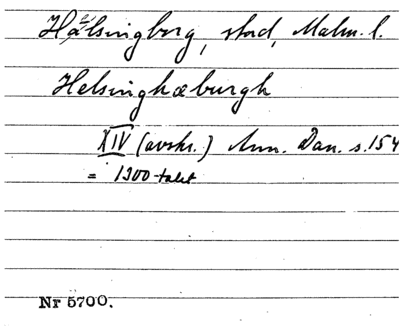 Hälsingborg, stad, Malm. l.
Helsinghæburgh
XIV (avskr.) Ann. Dan. s. 154
= 1300-talet
Nr 5700.